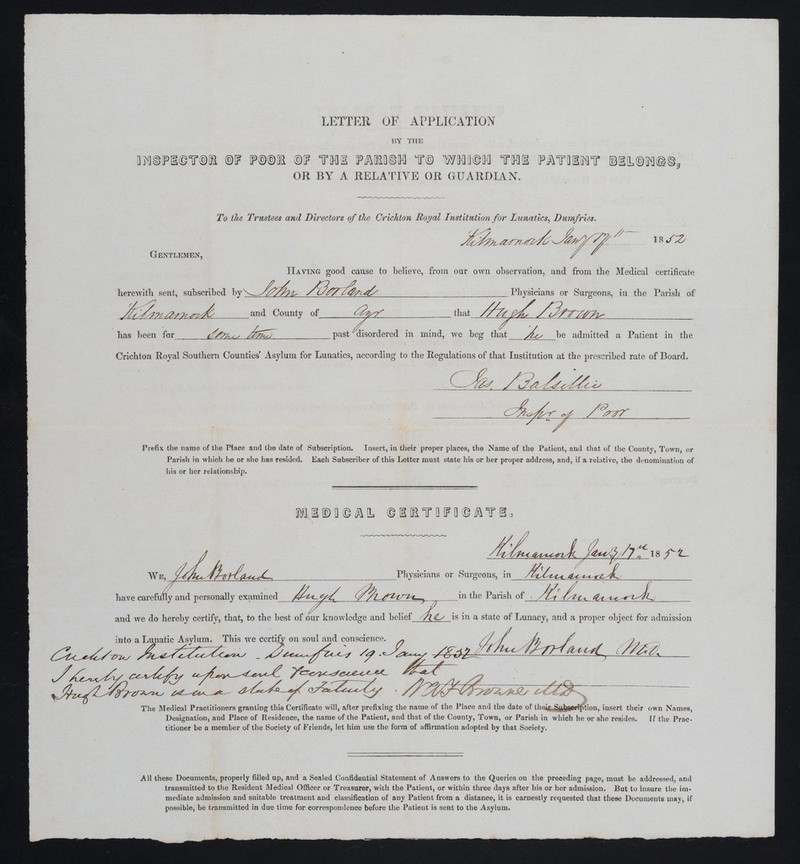 LETTER OF APPLICATION
BY THE
INSPECTOR OF POOR OF THE PARISH TO WHICH THE PATIENT BELONGS,
OR BY A RELATIVE OR GUARDIAN.
To the Trustees and Directors of the Crichton Royal Institution for Lunatics, Dumfries.
Kilmarnock Jany 17th 1852
GENTLEMEN,
HAVING good cause to believe, from our own observation, and from the Medical certificate
herewith sent, subscribed by John Borland Physicians or Surgeons, in the Parish of
Kilmarnock and County of Ayr that Hugh Brown
has been for some time past disordered in mind, we beg that he be admitted a Patient in the
Crichton Royal Southern Counties' Asylum for Lunatics, according to the Regulations of that Institution at the prescribed rate of Board.
Jas. Balsillie
Inspr of Poor
Prefix the name of the Place and the date of Subscription. Insert, in their proper places, the Name of the Patient, and that of the County, Town, or
Parish in which he or she has resided. Each Subscriber of this Letter must state his or her proper address, and, if a relative, the denomination of
his or her relationship.
MEDICAL CERTIFICATE.
Kilmarnock Jany 17th 1852
WE, John Borland Physicians or Surgeons, in Kilmarnock
have carefully and personally examined Hugh Brown in the Parish of Kilmarnock
and we do hereby certify, that, to the best of our knowledge and belief he is in a state of Lunacy, and a proper object for admission
into a Lunatic Asylum. This we certify on soul and conscience.
John Borland M.D.
Crichton Institution Dumfries 19 Jany 1852
I hereby certify upon soul & conscience that
Hugh Brown is in a state of Fatuity. W A F Browne MD
The Medical Practitioners granting this Certificate will, after prefixing the name of the Place and the date of their Subscription, insert their own Names,
Designation, and Place of Residence, the name of the Patient, and that of the County, Town, or Parish in which he or she resides. If the Prac-
titioner be a member of the Society of Friends, let him use the form of affirmation adopted by that Society.
All these Documents, properly filled up, and a Sealed Confidential Statement of Answers to the Queries on the preceding page, must be addressed, and
transmitted to the Resident Medical Officer or Treasurer, with the Patient, or within three days after his or her admission. But to insure the im-
mediate admission and suitable treatment and classification of any Patient from a distance, it is earnestly requested that these Documents may, if
possible, be transmitted in due time for correspondence before the Patient is sent to the Asylum.